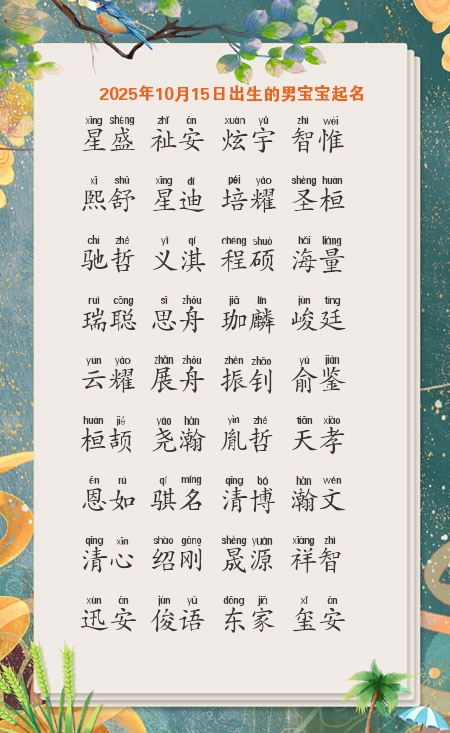 2025年10月15日出生的男宝宝起名
xīng shèng zhǐ ān xuàn yǔ zhì wéi
星盛 祉安 炫宇 智惟
xī shū xīng dí péi yào shèng huán
熙舒 星迪 培耀 圣桓
chí zhé yì qí chéng shuò hǎi liàng
驰哲 义淇 程硕 海量
ruì cōng sī zhōu jiā lín jùn tíng
瑞聪 思舟 珈麟 峻廷
yún yào zhǎn zhōu zhèn zhāo yú jiàn
云耀 展舟 振钊 俞鉴
huán jié yáo hàn yìn zhé tiān xiào
桓颉 尧瀚 胤哲 天孝
ēn rú qí míng qīng bó hàn wén
恩如 骐名 清博 瀚文
qīng xīn shào gāng shèng yuán xiáng zhì
清心 绍刚 晟源 祥智
xùn ān jùn yǔ dōng jiā xǐ ān
迅安 俊语 东家 玺安